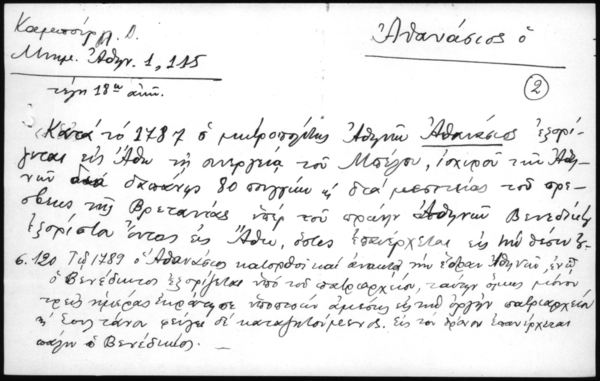 Καμπούρογλ. Δ.
Μνημ. Ἀθην. 1, 115
τέλη 18ου αἰών.
Ἀθανάσιος ὁ
2
Κατά τό 1787 ὁ μητροπολίτης Ἀθηνῶν Ἀθανάσιος ἐξορί-
ζεται εἰς Ἄθω τῇ συνεργείᾳ τοῦ Μπέλου, ἰσχυροῦ τῶν Ἀθη-
νῶν δαπάνης 80 πουγγιῶν καὶ διά μεσιτείας τοῦ πρε-
σβεως τῆς Βρετανίας ὑπέρ τοῦ πρώην Ἀθηνῶν Βενεδίκτου
ἐξορίστου ὄντος εἰς Ἄθω, ὅστις ἐπανέρχεται εἰς τήν θέσιν
σ. 120 Τῷ 1789 ὁ Ἀθανάσιος κατορθοῖ καί ἀνακτᾷ τήν ἕδραν Ἀθηνῶν, ἐνῷ
ὁ Βενέδικτος ἐξορίζεται ὑπό τοῦ πατριαρχείου, ταύτην ὅμως μόνον
τρεῖς ἡμέρας ἐκράτησε ὑποπεσών ἀμέσως εἰς τήν ὀργήν πατριαρχείου
καὶ φεύγει καταζητούμενος. εἰς τόν θρόνον ἐπανέρχεται
πάλιν ὁ Βενέδικτος.